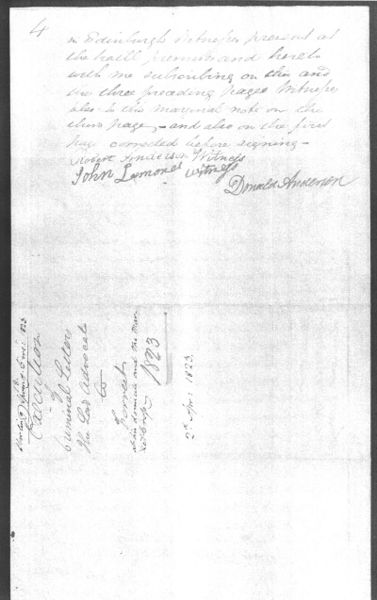 4
in Edinburgh Witnesses present at
the hail premises and hereto
with me subscribing on this and
the three preceding pages Witnesses
also to the marginal note on the
third page, – and also on the first
page corrected before signing –
Robert Anderson Witness
John Lamont witness
Donald Anderson
Execution
Criminal Letters
The Lord Advocate
to
Forrest
at his domicile and the Mar
1823
2d Apr 1823.